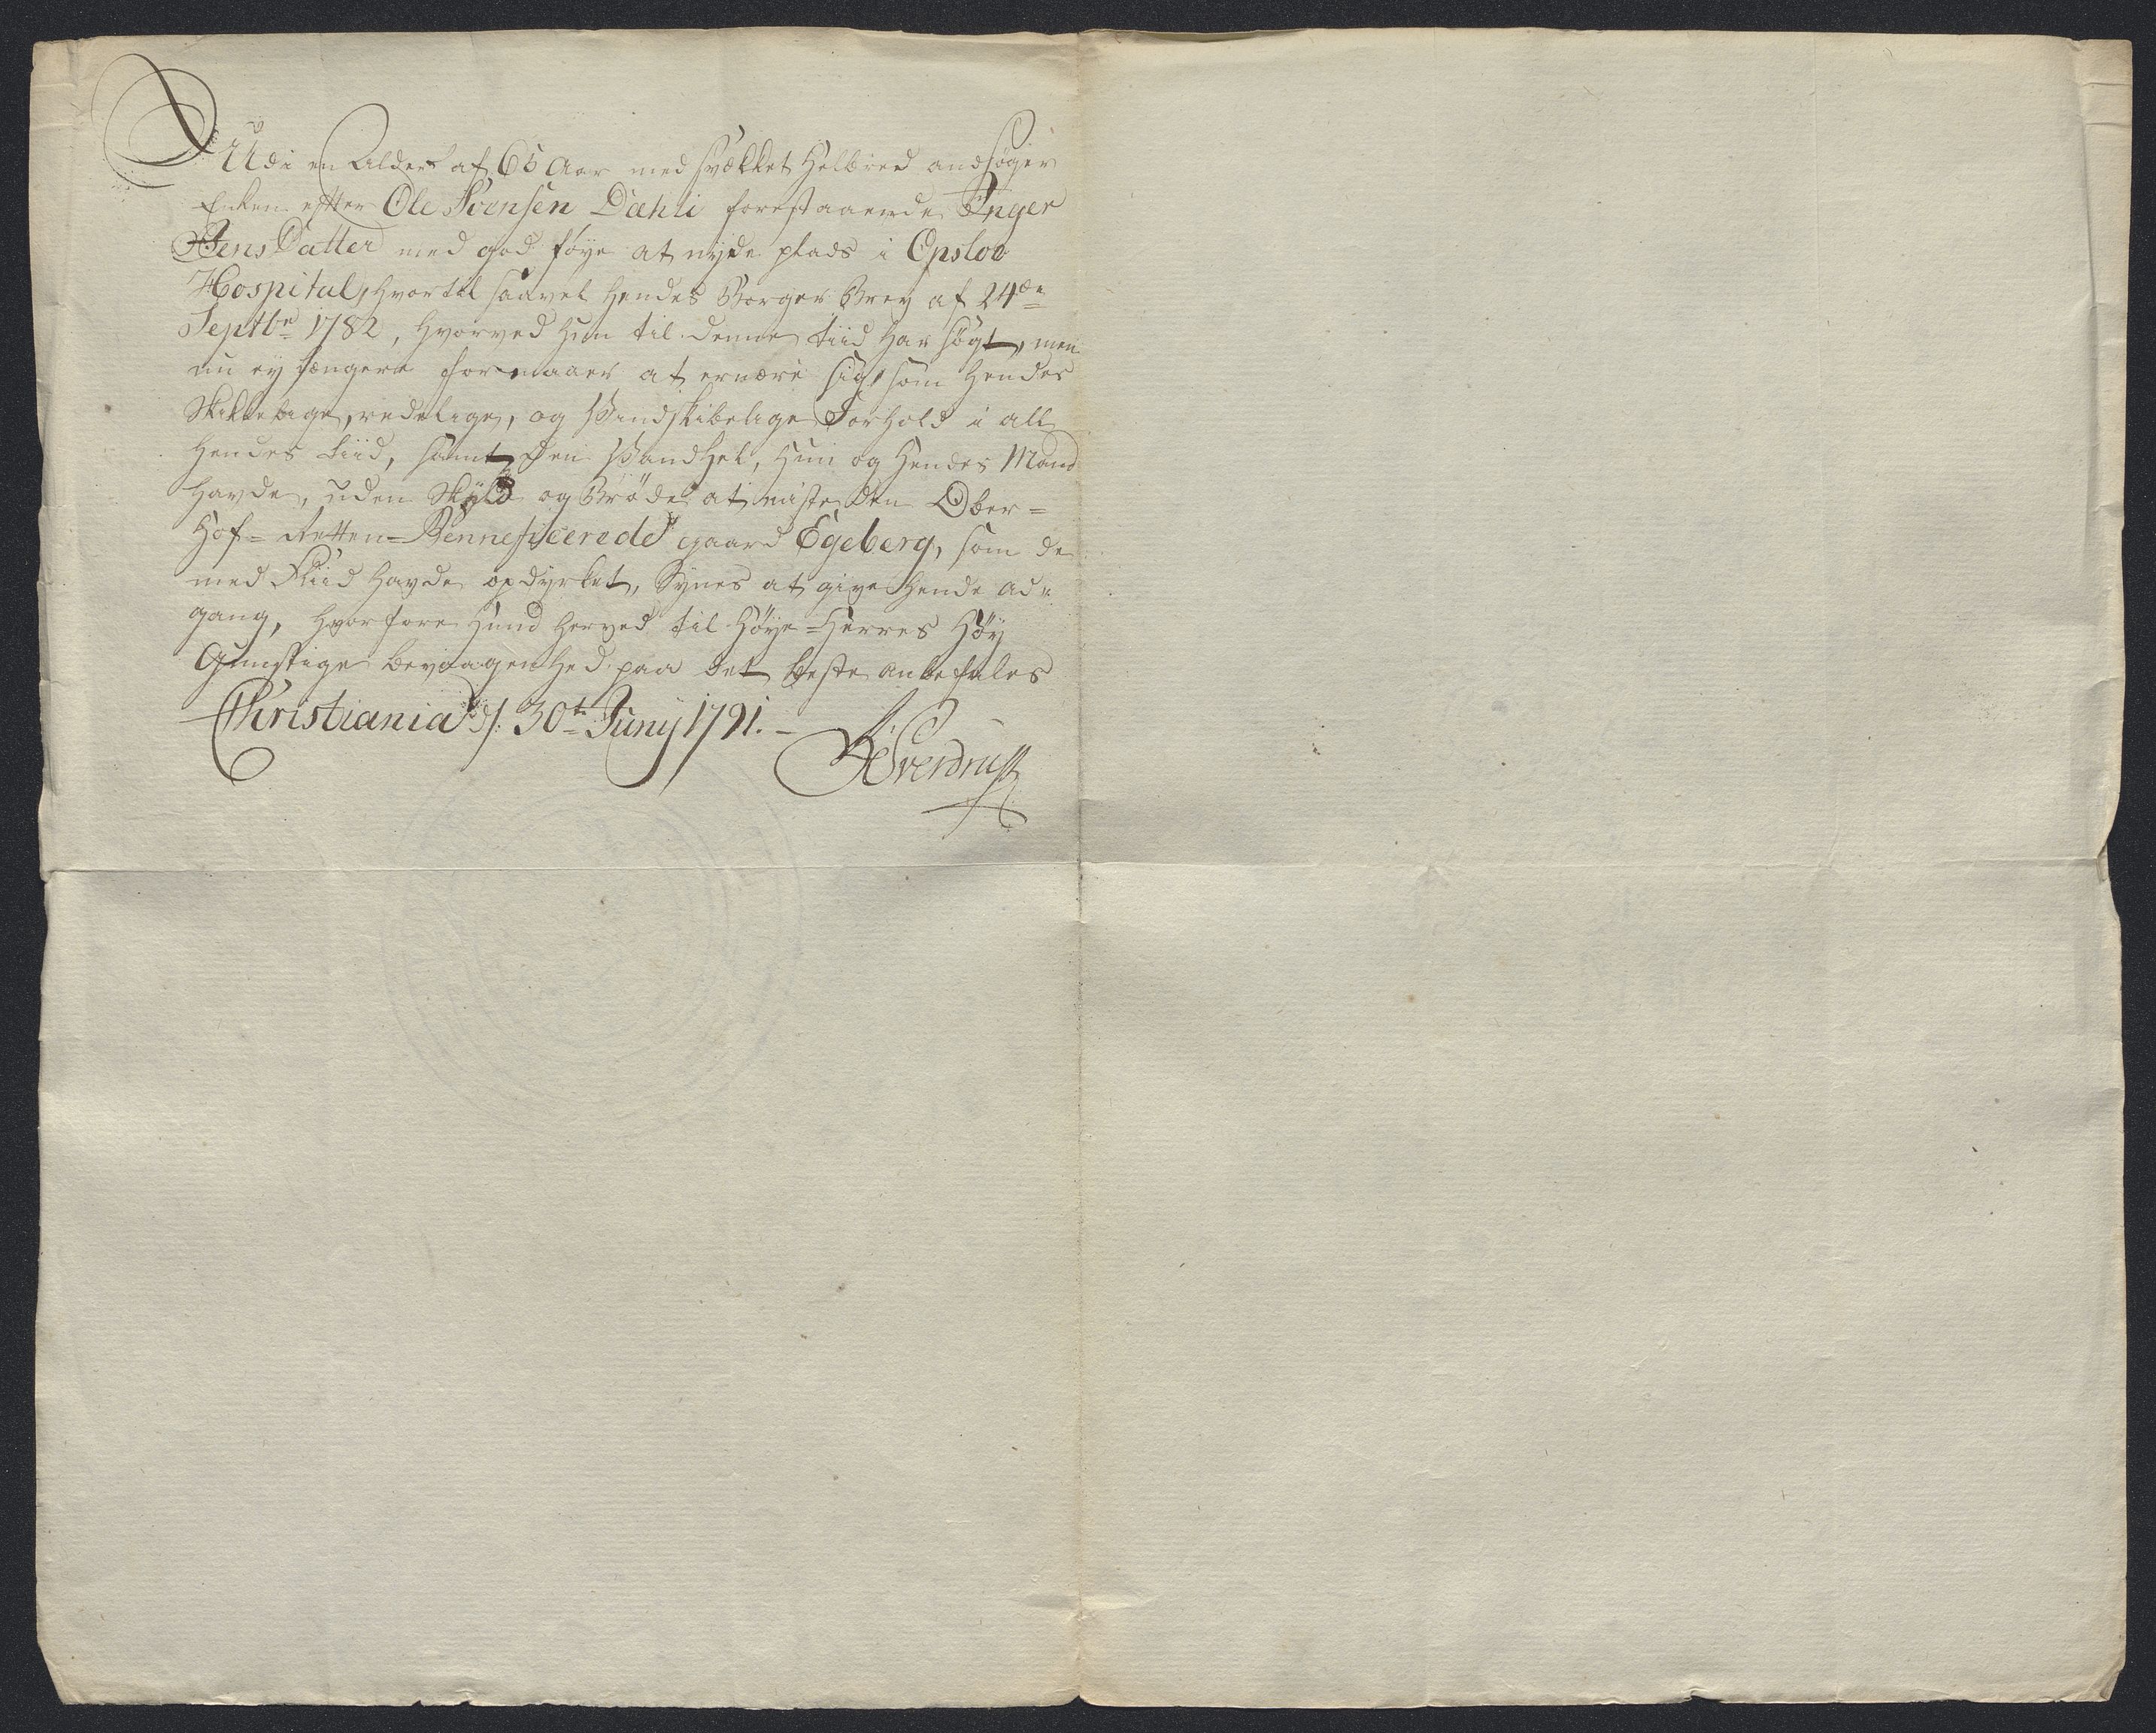 Udi en Alder af 65 Aar med svækket Helbred andsøger
Enken efter Ole Svensen Dæhli forestaaende Inger
Jens Datter med god føye at nyde plads i Opsloe
Hospital, hvortil saavel hendes Borger Brev af 24de
Septbr 1782, hvorved hun til denne tiid har søgt, men
nu ey længere formaaer at ernære sig, som hendes
Skikkelige, redelige, og Vindskibelige Forhold i all
hendes tiid, samt den Vandhel, hun og hendes Mand
havde, uden Skyld og Brøde at miste den Ober=
Hof=Retten=Benneficerede gaard Egeberg, som de
med Fliid havde opdyrket, Synes at give hende ad=
gang, hvorfore hund herved til Høye=Herres Høy
Gunstige bevaagenhed paa det beste anbefales
Christiania d: 30t Juny 1791.
Sverdrup